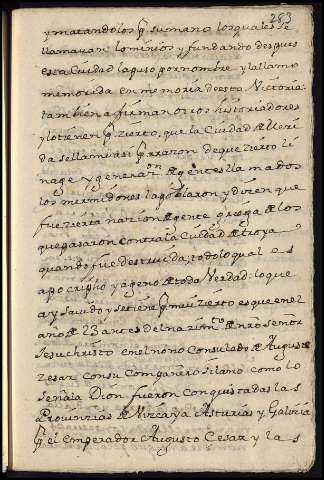 283
y matandolos por su mano los quales se
llamavan lominios y fundando despues
esta Ciudad la puso por nombre y la llamo
memorida en memoria de esta Victoria:
tambien afirman otros historiadores
y lo tienen por zierto, que la Ciudad de Meri
da se llamo asi por razon de que zierto li
nage y generazon de gentes llamados
los mirmidones la poblaron y dizen que
fue zierta nazion de gente griega de los
que pasaron contra la Ciudad de troya
quando fue destruida; todo lo qual es
apocripho y ageno de toda Verdad: lo que
ay savido y se tiene por mui zierto es que en el
año de 23 antes del nazimto de nro Señor
Jesuchristo en el nono Consulado de Auguste
Zesar con su Compañero silano como lo
señala Dion fueron conquistadas las
Provinzias de Vizcaya Asturias y Galizia
por el emperador Augusto Cesar y las